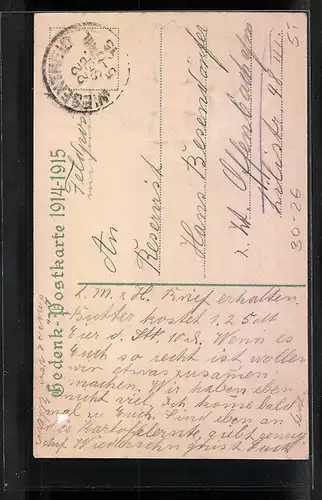 Gedenk-Postkarte 1914-1915
WIESENTHEID
Feldpost
An
Reservist
Hans Besendörfer
z. Zt. Offenbach
30-26
L. M. & H. Brief erhalten.
Butter kostet 1.25 dt
Eier d. Stk. 10 d. Wenn es
Euch so recht ist wollen
wir etwas zusamen
machen. Wir haben eben
nicht viel. Ich kome bald
mal zu Euch. Sind eben an
der Kartofelernte, gibt genug
Auf Wiedersehn grüst Euch